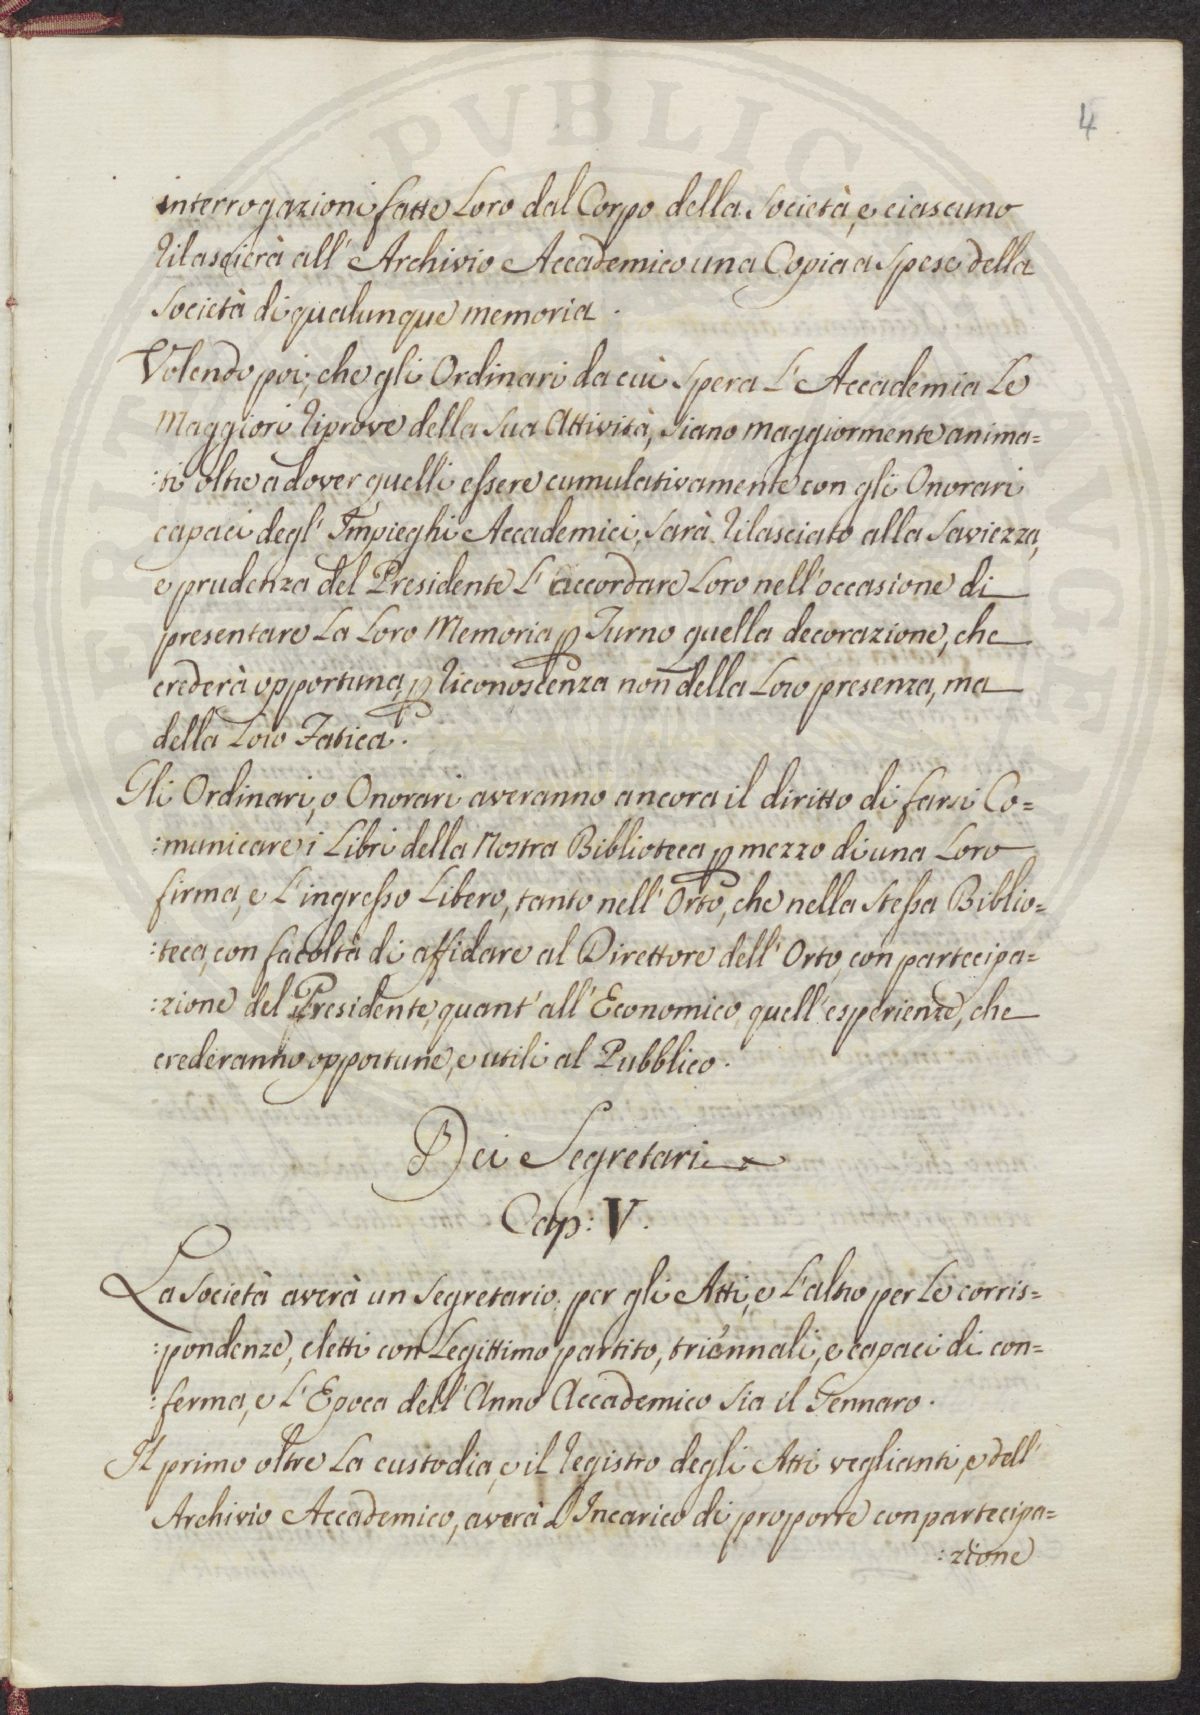 4
interrogazioni fatte Loro dal Corpo della Società, e ciascuno
rilascierà all' Archivio Accademico una Copia a spese della
Società di qualunque memoria.
Volendo poi, che gli Ordinari da cui spera L' Accademia Le
Maggiori riprove della Sua Attività, siano maggiormente anima=
:ti oltre a dover quelli essere cumulativamente con gli Onorari
capaci degl' Impieghi Accademici, sarà rilasciato alla Saviezza,
e prudenza del Presidente L' accordare Loro nell'occasione di
presentare La Loro Memoria p Turno quella decorazione, che
crederà opportuna, p riconoscenza non della Loro presenza, ma
della Loro Fatica.
Gli Ordinari, o Onorari averanno ancora il diritto di farsi Co=
:municare i Libri della Nostra Biblioteca p mezzo di una Loro
firma, e L'ingresso Libero, tanto nell' Orto, che nella Stessa Biblio=
:teca, con facoltà di affidare al Direttore dell' Orto, con partecipa=
:zione del Presidente, quant' all' Economico, quell' esperienze, che
crederanno opportune, e utili al Pubblico.
Dei Segretari
Cap: V.
La Società averà un Segretario per gli Atti, e L'altro per Le corris=
:pondenze, eletti con Legittimo partito, triennali, e capaci di con=
:ferma, e L' Epoca dell' Anno Accademico Sia il Gennaro.
Il primo oltre La custodia, e il Registro degli Atti veglianti, e dell'
Archivio Accademico, averà L' Incarico di proporre con partecipa=
:zione